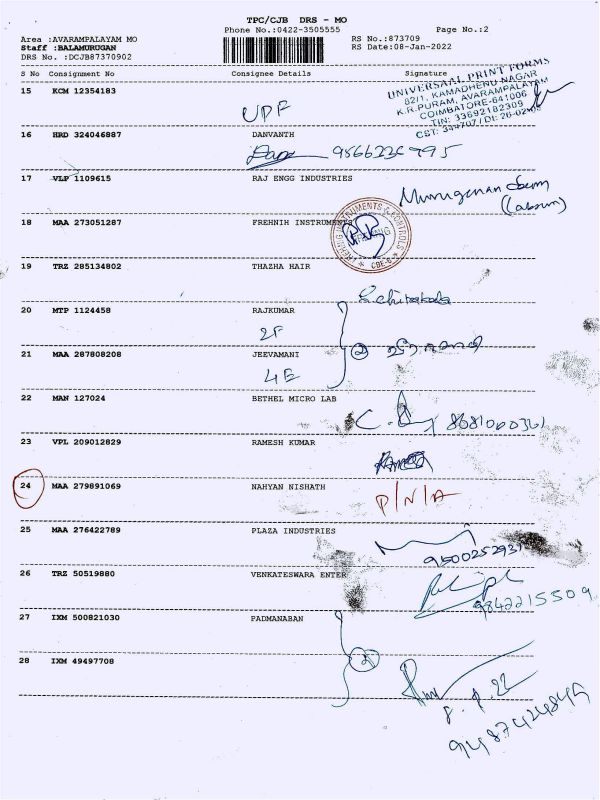 TPC/CJB DRS - MO
Phone No.:0422-3505555 Page No.:2
Area :AVARAMPALAYAM MO RS No.:873709
Staff :BALAMURUGAN RS Date:08-Jan-2022
DRS No. :DCJB87370902
S No Consignment No Consignee Details Signature
UNIVERSAAL PRINT FORMS
82/1, KAMADHENU NAGAR
K.R.PURAM, AVARAMPALAYAM
COIMBATORE-641006
TIN: 33692182309
CST: 344707 / Dt: 26-02-
15 KCM 12354183
UPF
16 HRD 324046887 DANVANTH
17 VLP 1109615 RAJ ENGG INDUSTRIES
Murugenan
18 MAA 273051287 FREHNIH INSTRUMEN
INSTRUMENTS & CONTROLS
CBE-6
19 TRZ 285134802 THAZHA HAIR
20 MTP 1124458 RAJKUMAR
2F
21 MAA 287808208 JEEVAMANI
2
4E
22 MAN 127024 BETHEL MICRO LAB
8681060361
23 VPL 209012829 RAMESH KUMAR
24 MAA 279891069 NAHYAN NISHATH
P/N/A
25 MAA 276422789 PLAZA INDUSTRIES
9500252931
26 TRZ 50519880 VENKATESWARA ENTER
9842215509
27 IXM 500821030 PADMANABAN
2
28 IXM 49497708
8.1.22